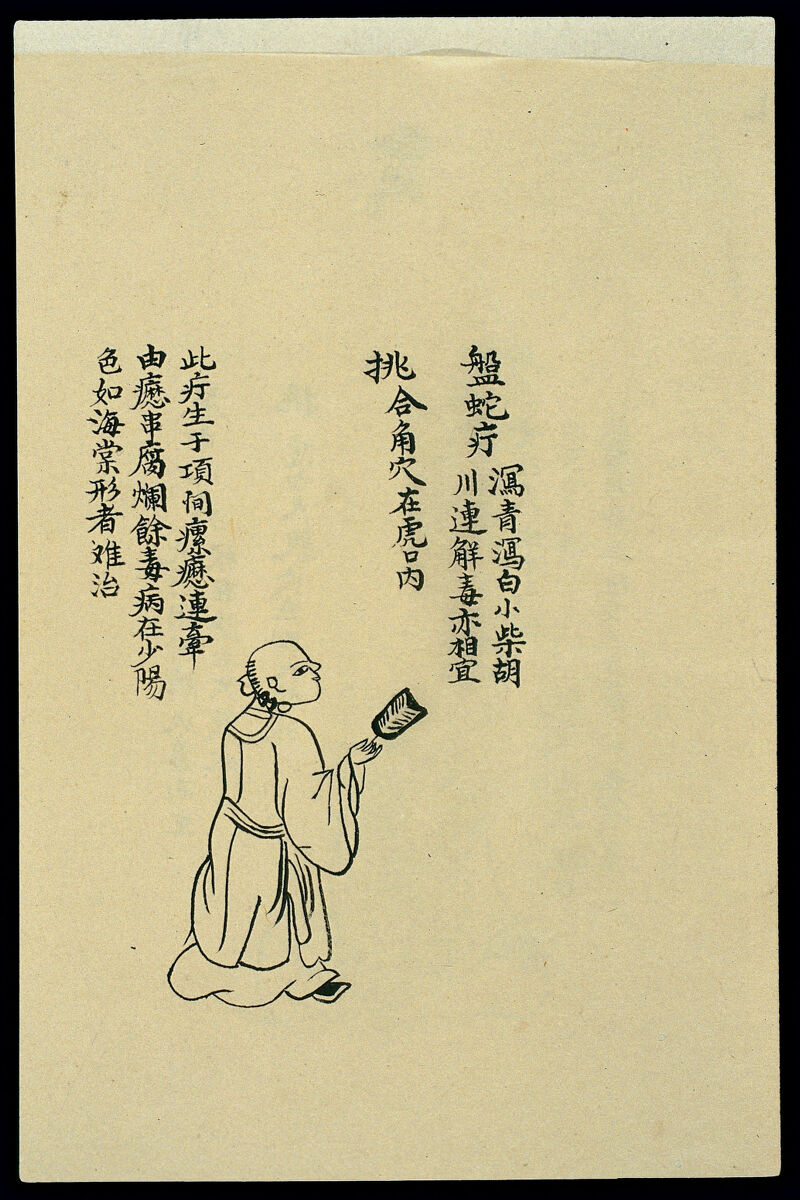 盤蛇疔
瀉青瀉白小柴胡
川連解毒亦相宜
挑合角穴在虎口內
此疔生于項間瘰癧連牽
由癧串腐爛餘毒病在少陽
色如海棠形者难治